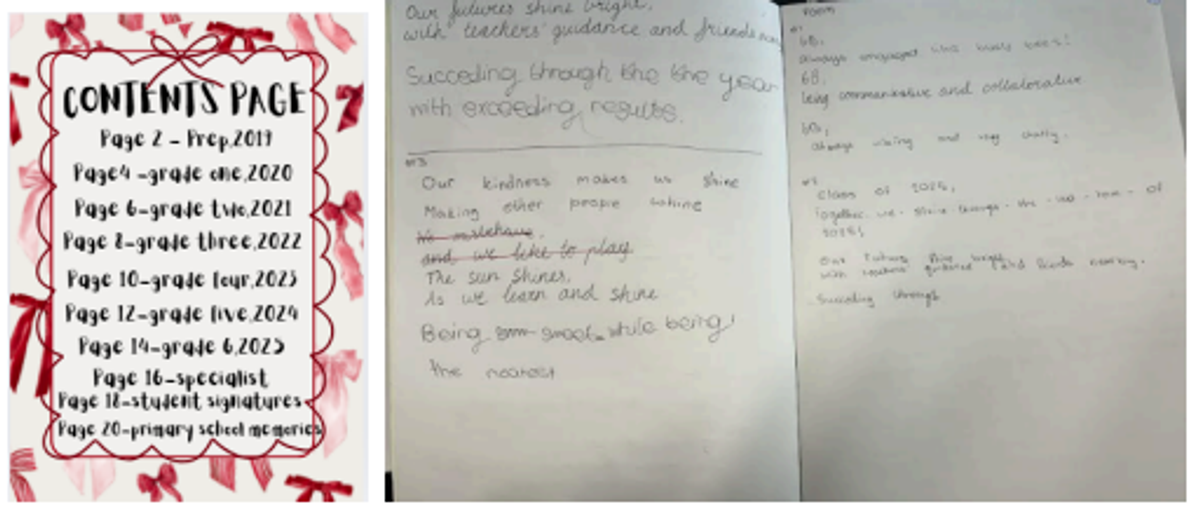 CONTENTS PAGE
Page 2 - Prep,2019
Page4 -grade one,2020
Page 6-grade two,2021
Page 8-grade three,2022
Page 10-grade four,2023
Page 12-grade five,2024
Page 14-grade 6,2025
Page 16-specialist
Page 18-student signatures
Page 20-primary school memories
Our futures shine bright,
with teachers' guidance and friends
Succeding through the the year
with exceeding results.
#3
Our kindness makes us shine
Making other people whine
We misbehave,
and we like to play
The sun shines,
As we learn and shine
Being smart while being
the nearest
Poem
#1
6B,
always engaged like busy bees!
6B,
being communicative and collaborative
6B,
always and very chatty.
#2
Class of 2025,
Together we shine through the of
2025!
Our futures shine bright
with teachers' guidance and friends nearby.
Succeding through